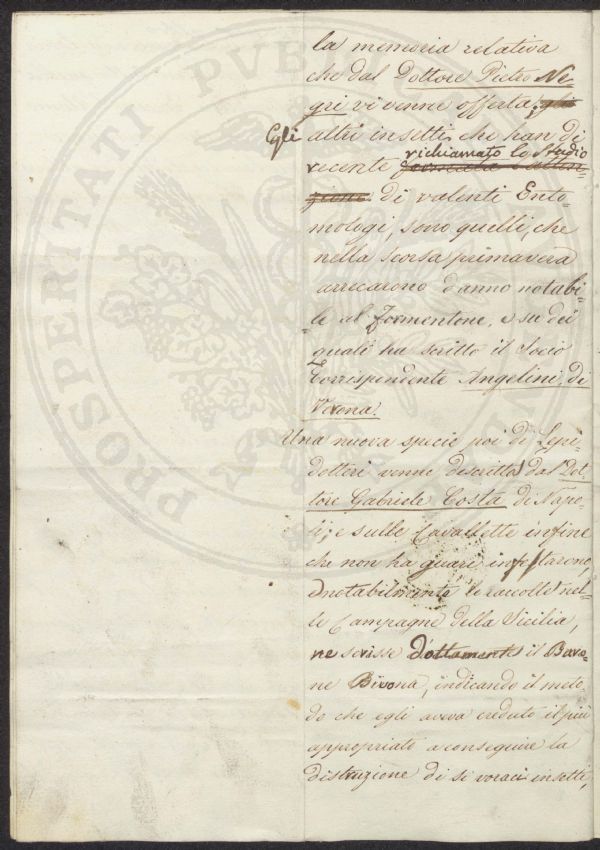 PROSPERITATI PVBLICAE
la memoria relativa
che dal Dottore Pietro Ne-
gri vi venne offerta; gli
Egli altri insetti che han di
recente richiamato lo studio
di valenti Ento
mologi, sono quelli, che
nella scorsa primavera
arrecarono danno notabi-
le al formentone, e su dei
quali ha scritto il Socio
Corrispondente Angelini di
Verona.
Una nuova specie poi di Lepi
dotteri venne descritta dal Dot-
tore Gabriele Costa di Napo-
li; e sulle Cavallette infine
che non ha guari infestarono
notabilmente le raccolte nel-
le Campagne della Sicilia,
ne scrisse dottamente il Baro-
ne Bivona, indicando il meto-
do che egli aveva creduto il più
appropriato a conseguire la
distruzione di sì voraci insetti,